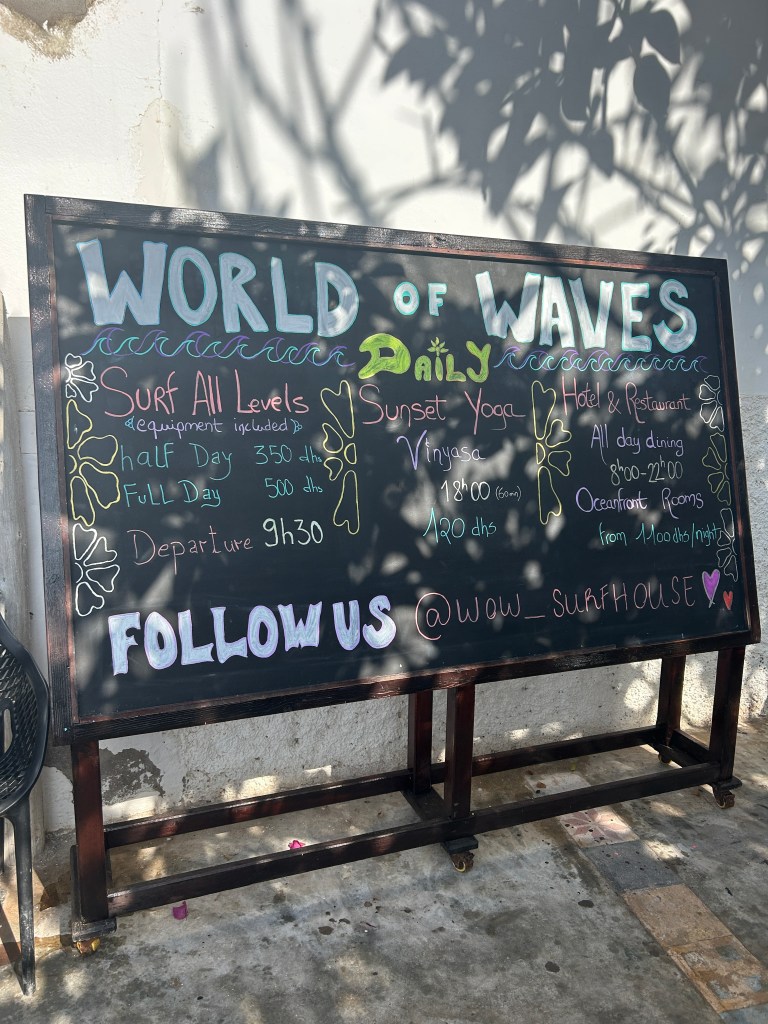 WORLD OF WAVES
DAILY
Surf All Levels
(equipment included)
half Day 350 dhs
Full Day 500 dhs
Departure 9h30
Sunset Yoga
Vinyasa
18h00 (60mn)
120 dhs
Hotel & Restaurant
All day dining
8h00-22h00
Oceanfront Rooms
from 1100dhs/night
FOLLOW US @WOW_SURFHOUSE